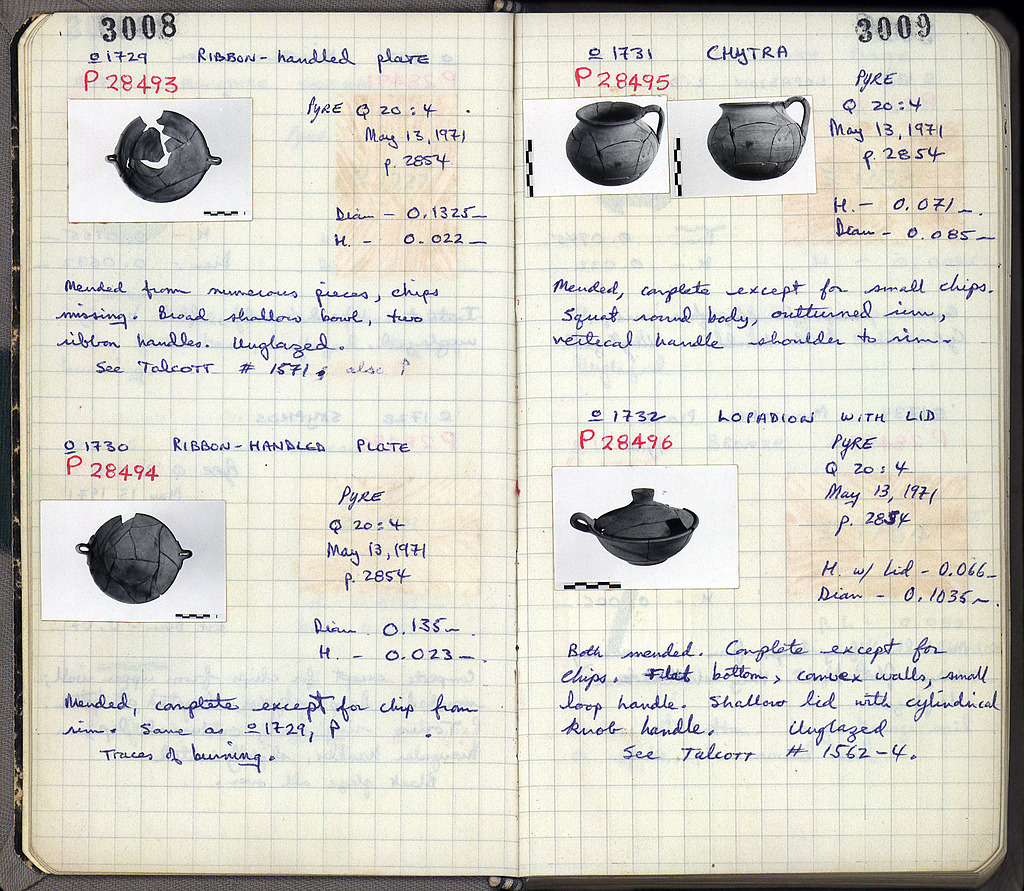 3008
o 1729 RIBBON-handled plate
P 28493
PYRE Q 20:4
May 13, 1971
p. 2854
Diam - 0.1325 m
H. - 0.022 m
Mended from numerous pieces, chips
missing. Broad shallow bowl, two
ribbon handles. Unglazed.
See Talcott # 1571; also P
o 1730 RIBBON-HANDLED PLATE
P 28494
PYRE
Q 20:4
May 13, 1971
p. 2854
Diam 0.135 m.
H. - 0.023 m.
Mended, complete except for chip from
rim. Same as o 1729, P .
Traces of burning.
3009
o 1731 CHYTRA
P 28495
PYRE
Q 20:4
May 13, 1971
p. 2854
H. - 0.071 m.
Diam - 0.085 m
Mended, complete except for small chips.
Squat round body, outturned rim,
vertical handle shoulder to rim.
o 1732 LOPADION WITH LID
P 28496
PYRE
Q 20:4
May 13, 1971
p. 2854
H. w/ Lid - 0.066 m
Diam - 0.1035 m.
Both mended. Complete except for
chips. Flat bottom, convex walls, small
loop handle. Shallow lid with cylindrical
knob handle. Unglazed
See Talcott # 1562-4.